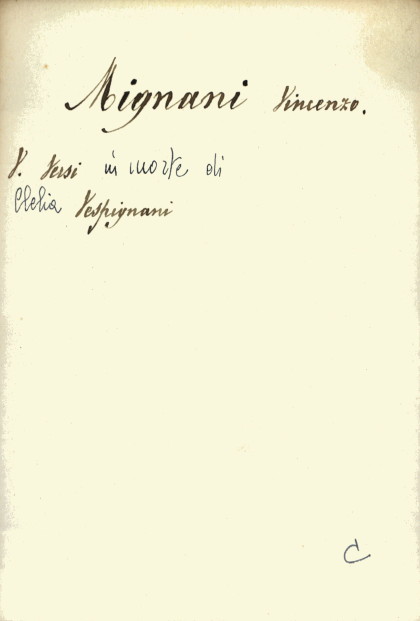 Mignani Vincenzo.
V. Versi in morte di
Clelia Vespignani
C